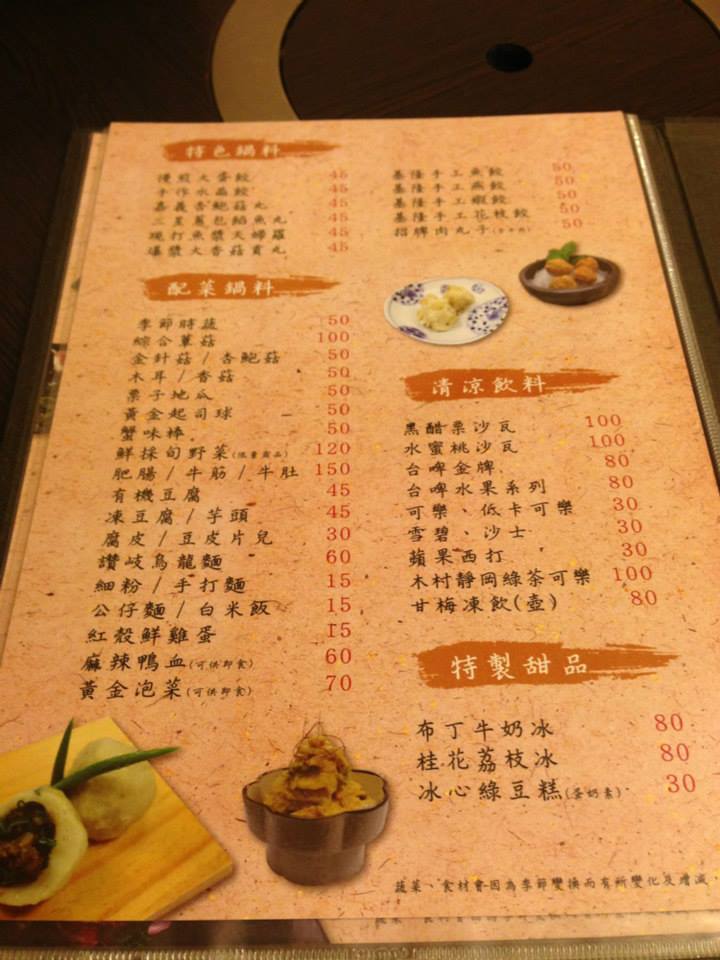 特色鍋料
慢煎大蛋餃 45
手作水晶餃 45
嘉義杏鮑菇丸 45
三星蔥包餡魚丸 45
現打魚漿天婦羅 45
爆漿大香菇貢丸 45
基隆手工魚餃 50
基隆手工燕餃 50
基隆手工蝦餃 50
基隆手工花枝餃 50
招牌肉丸子 50
配菜鍋料
季節時蔬 50
綜合蕈菇 100
金針菇/杏鮑菇 50
木耳/香菇 50
栗子地瓜 50
黃金起司球 50
蟹味棒 50
鮮採旬野菜(限量商品) 120
肥腸/牛筋/牛肚 150
有機豆腐 45
凍豆腐/芋頭 45
腐皮/豆皮片兒 30
讚岐烏龍麵 60
細粉/手打麵 15
公仔麵/白米飯 15
紅殼鮮雞蛋 15
麻辣鴨血(可供即食) 60
黃金泡菜(可供即食) 70
清涼飲料
黑醋栗沙瓦 100
水蜜桃沙瓦 100
台啤金牌 80
台啤水果系列 80
可樂、低卡可樂 30
雪碧、沙士 30
蘋果西打 30
木村靜岡綠茶可樂 100
甘梅凍飲(壺) 80
特製甜品
布丁牛奶冰 80
桂花荔枝冰 80
冰心綠豆糕(蛋奶素) 30
蔬菜、食材會因為季節變換而有所變化及增減。